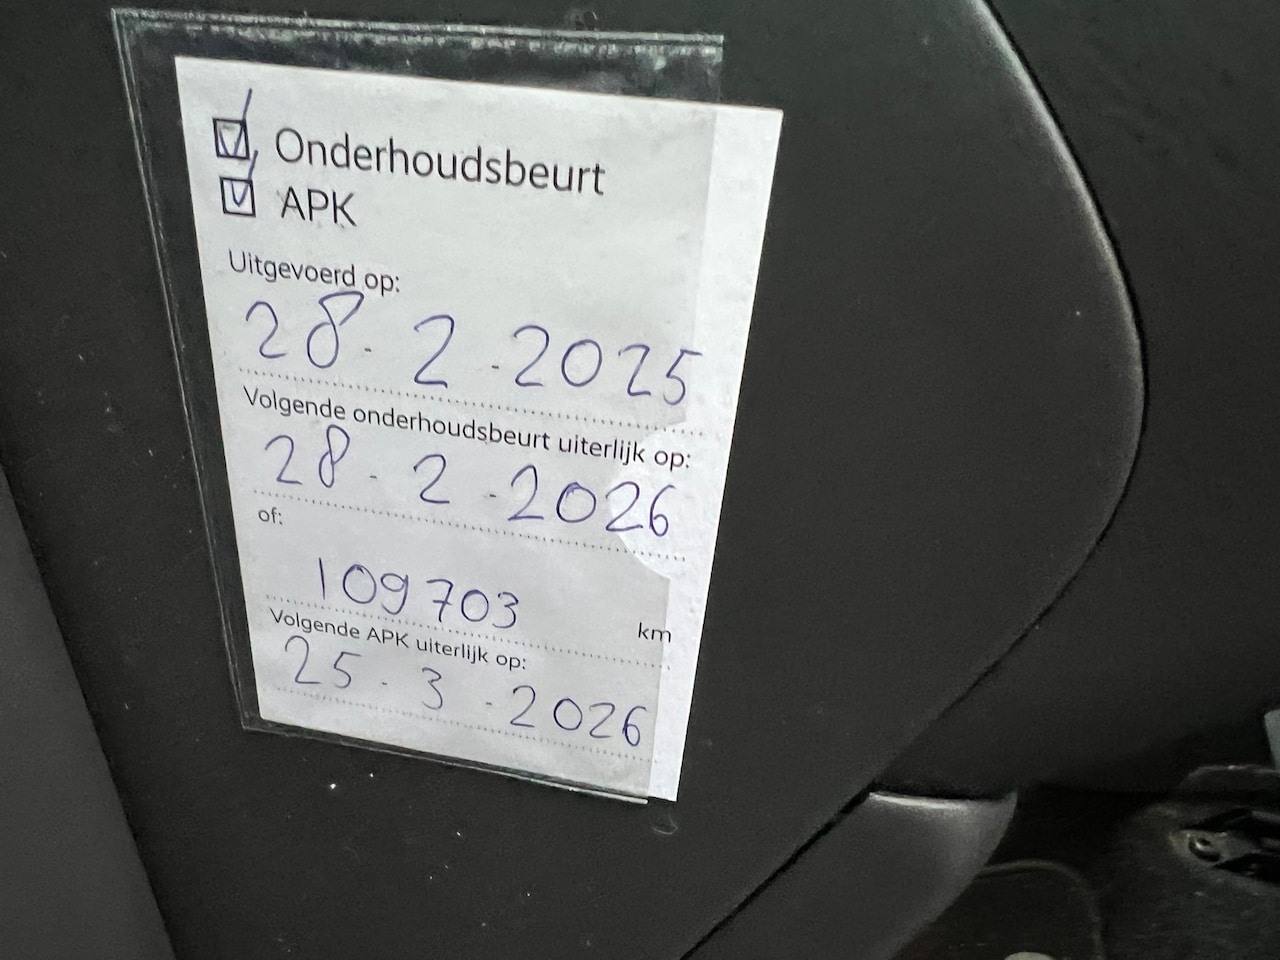 Onderhoudsbeurt
APK
Uitgevoerd op:
28-2-2025
Volgende onderhoudsbeurt uiterlijk op:
28-2-2026
of:
109703 km
Volgende APK uiterlijk op:
25-3-2026